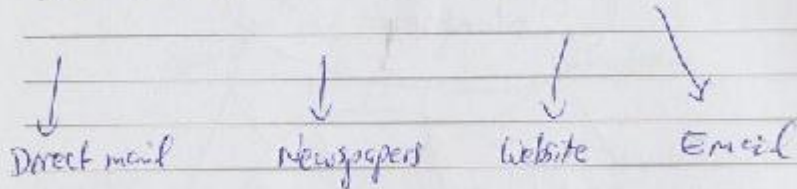 Direct mail Newspapers Website Email